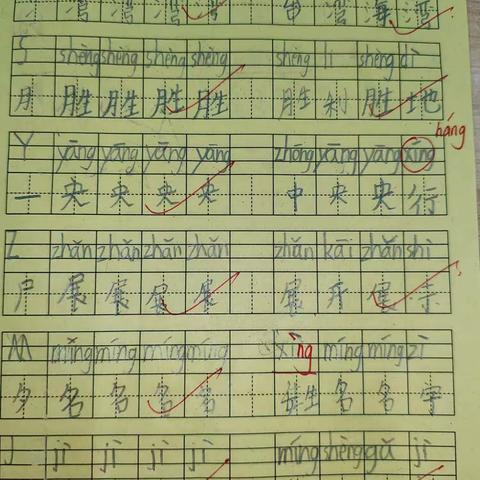 湾 湾 湾 湾 台 湾 海 湾
S shèng shèng shèng shèng shèng lì shèng dì
月 胜 胜 胜 胜 胜 利 胜 地
háng
Y yāng yāng yāng yāng zhōng yāng yāng xíng
一 央 央 央 央 中 央 央 行
Z zhǎn zhǎn zhǎn zhǎn zhǎn kāi zhǎn shì
尸 展 展 展 展 展 开 展 示
M míng míng míng míng xìng míng míng zì
夕 名 名 名 名 姓 名 名 字
J jì jì jì jì míng shèng gǔ jì